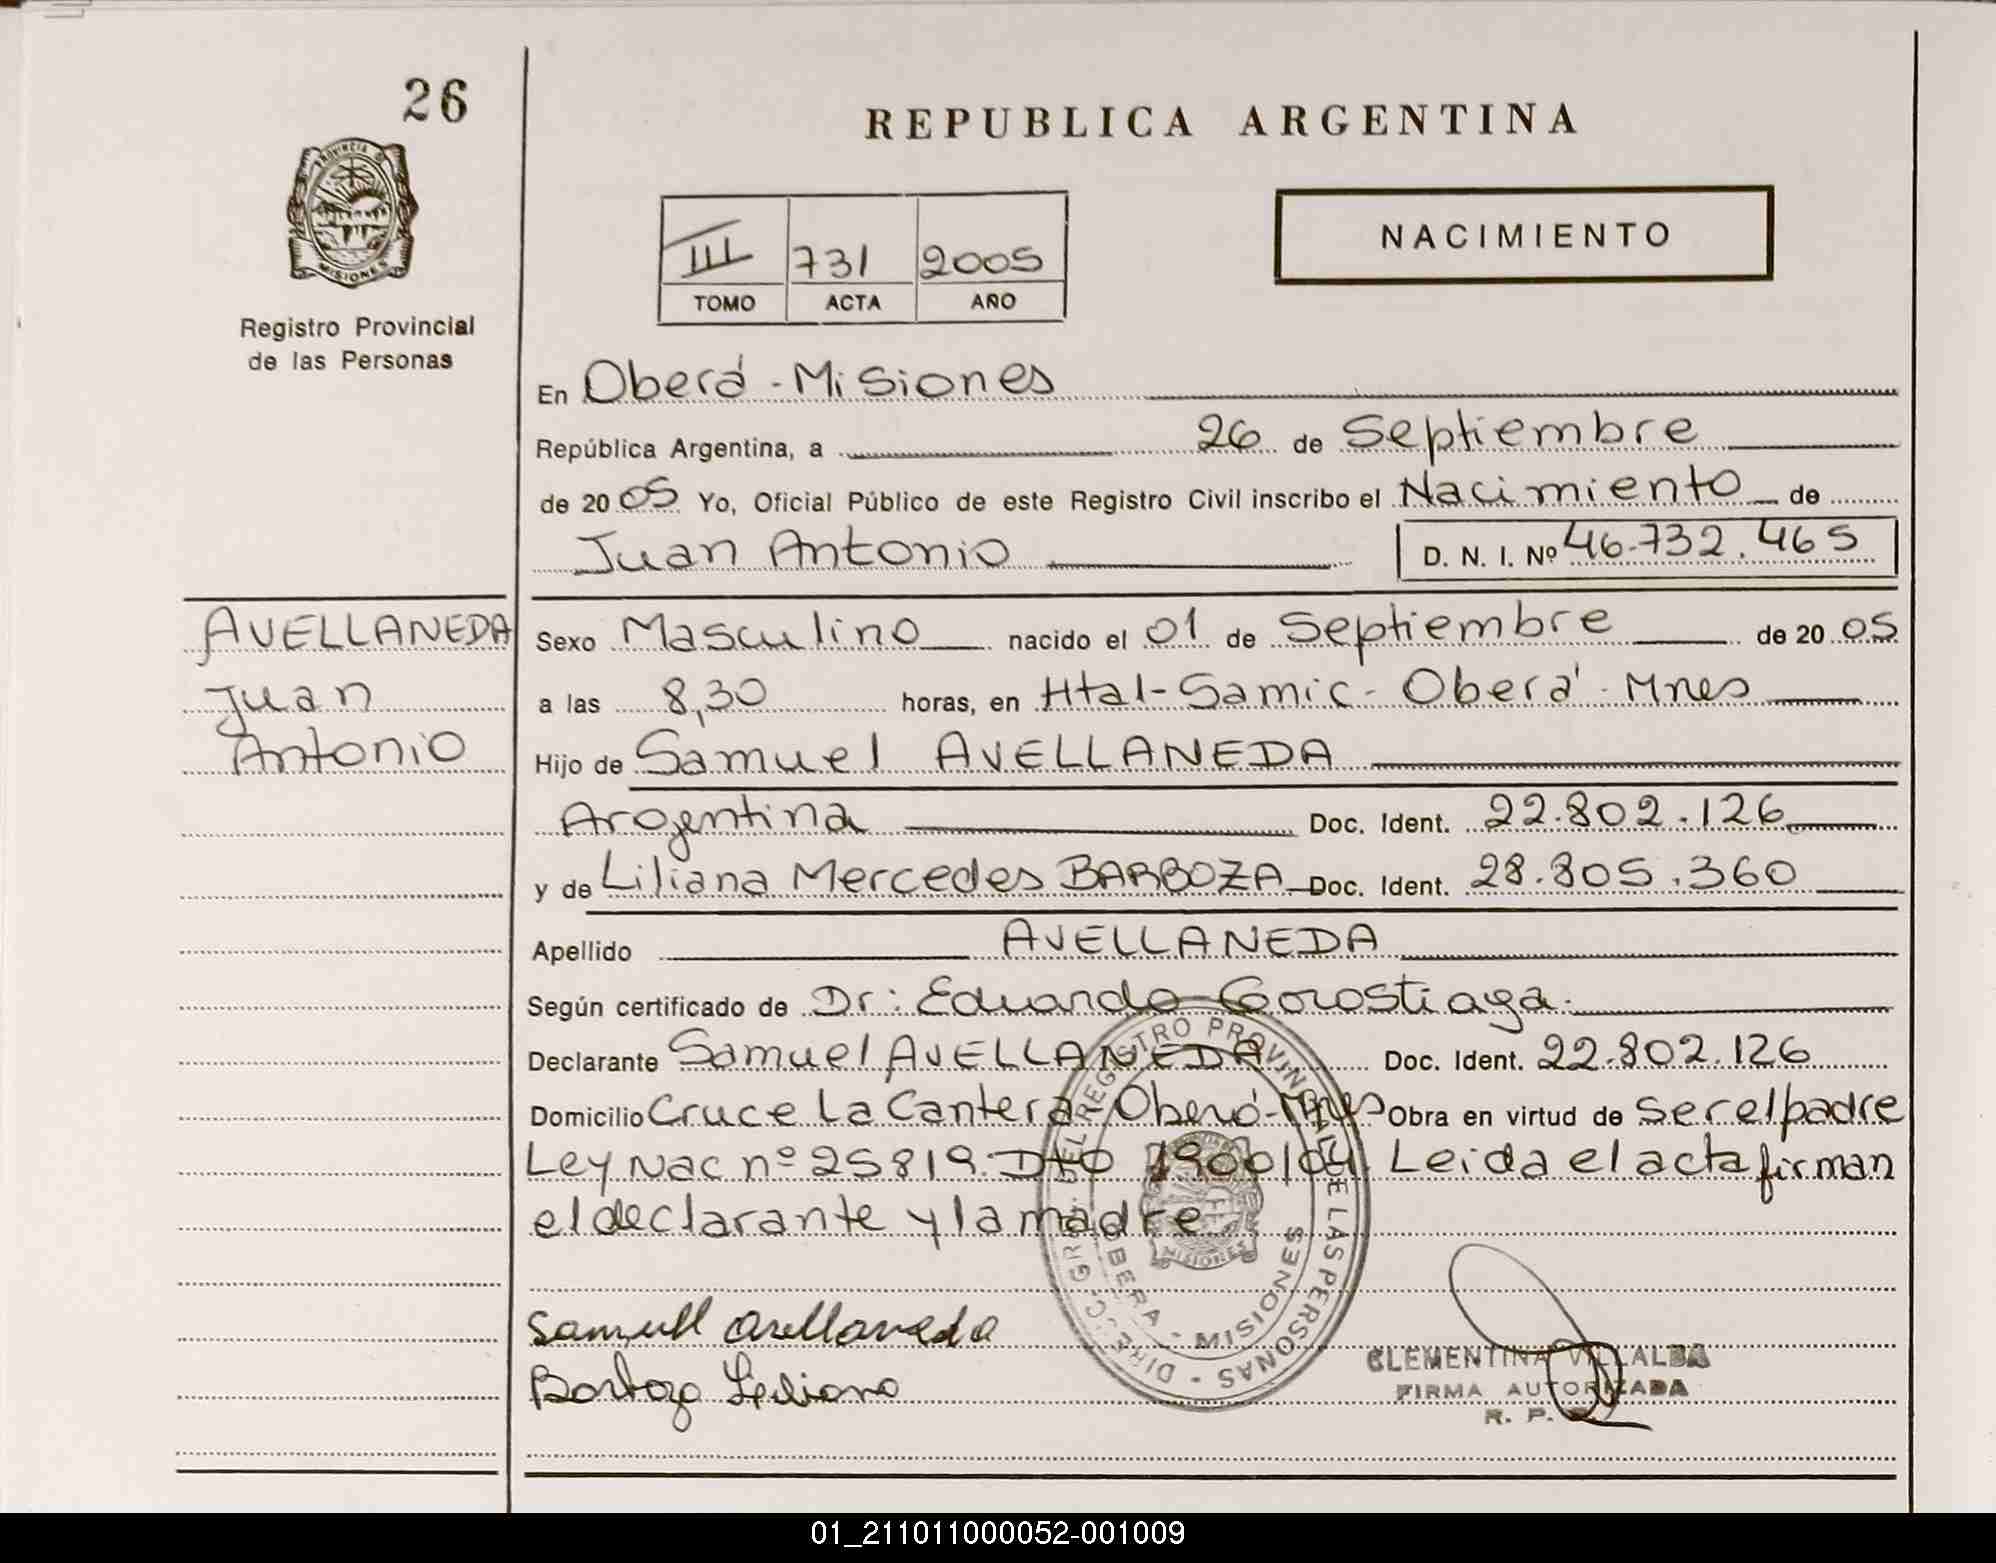 26
REPUBLICA ARGENTINA
PROVINCIA D
MISIONES
Registro Provincial
de las Personas
III 731 2005
TOMO ACTA AÑO
NACIMIENTO
En Oberá - Misiones
República Argentina, a 26 de Septiembre
de 20 05 Yo, Oficial Público de este Registro Civil inscribo el Nacimiento de
Juan Antonio D. N. I. Nº 46.732.465
AVELLANEDA
Juan
Antonio
Sexo Masculino nacido el 01 de Septiembre de 20 05
a las 8,30 horas, en Htal-Samic- Oberá - Mnes
Hijo de Samuel AVELLANEDA
Argentina Doc. Ident. 22.802.126
y de Liliana Mercedes BARBOZA Doc. Ident. 28.805.360
Apellido AVELLANEDA
Según certificado de Dr: Eduardo Gorostiaga.
Declarante Samuel AVELLANEDA Doc. Ident. 22.802.126
Domicilio Cruce La Cantera - Oberá - Mnes Obra en virtud de ser el padre
Ley Nac nº 25819. Dto 1900/04. Leida el acta firman
el declarante y la madre
DIRECC. GRAL. DEL REGISTRO PROVINCIAL DE LAS PERSONAS -
OBERA - MISIONES
MISIONES
Samuel Avellaneda
Barboza Liliana
CLEMENTINA VILLALBA
FIRMA AUTORIZADA
R. P.
01_211011000052-001009